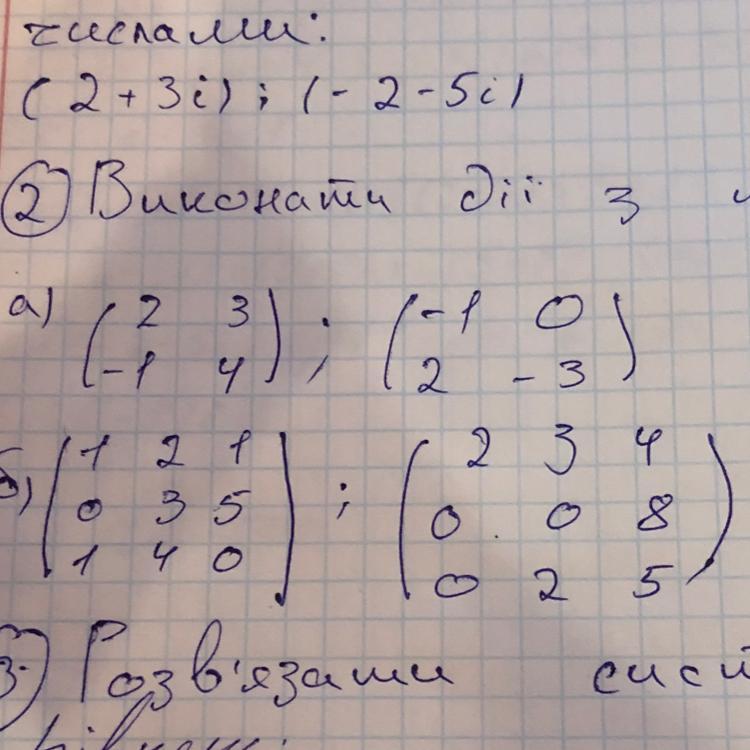 числами:
(2+3i); (-2-5i)
2 Виконати дії з
а) (2 3
-1 4) ; (-1 0
2 -3)
б) (1 2 1
0 3 5
1 4 0) ; (2 3 4
0 0 8
0 2 5)
3. Розв'язати